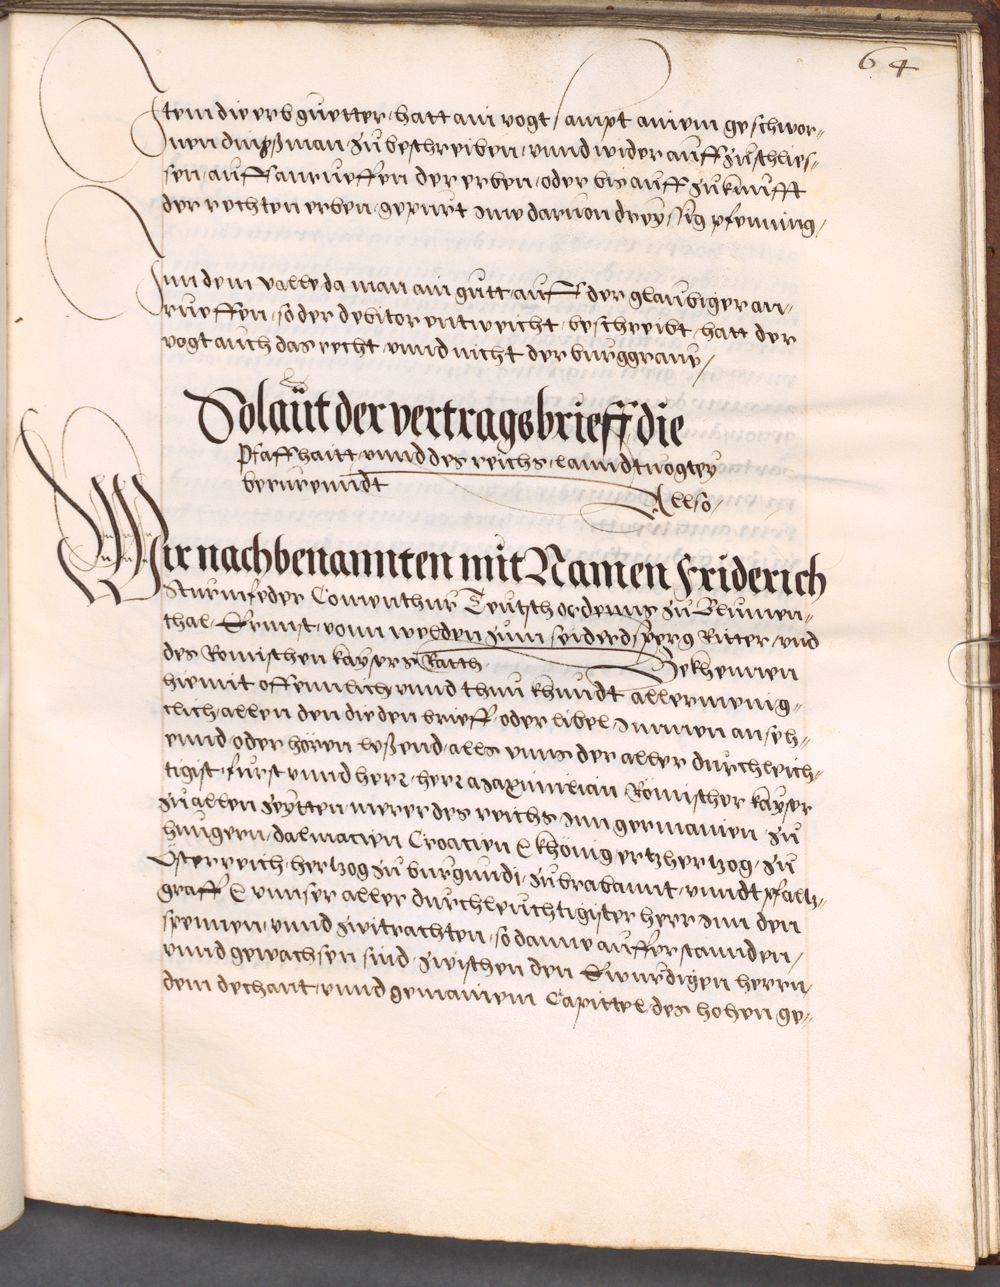 64
Item die erbguetter, hatt ain vogt, ampt, ainem geschwor=
nen dinßman zu beschreiben, vnnd wider auff zuschlies=
sen, auff anrueffen der erben, oder bis auff zukunfft
der rechten erben, gepürt ime daruon dreyssig pfenning,
Inn dem valle da man ain gutt, auff der glaubiger an=
rueffen, so der debitor entweicht, beschreibt, hatt der
vogt auch das recht, vnnd nicht der burggraue,
So laüt der vertragsbrieff, die
Pfaffhaitt, vnnd des reichs, lanndtuogtey
berurenndt
Allso,
Wir nachbenannten mit Namen Friderich
Sturmfeder Comenthur Teutsch ordenns zu Blumen=
thal, Ernnst, vonn welden zum seiderdsperg Ritter, vnd
des Romischen kaysers Ratth, Bekhennen
hiemit offennlich vnnd thun khundt allermenig=
clich, allen den die den brieff, oder libel Innnen anseh=
ennd, oder hören leßend, alls vnns der aller durchleich=
tigist, fürst vnnd herr, herr Maximilian Römischer kayser
zu allen zeytten, merer des reichs, Inn germanien zu
hungern, dalmatien Croatien &c khönig, ertzhertzog, zu
Österreich, hertzog zu burgundi, zu brabannt, vnndt pfallz=
graff &c vnnser aller durchleuchtigister herr Inn den
spennen, vnnd zwitrachten, so danne aufferstannden,
vnnd gewachsen sind, zwischen den Erwurdigen herrn,
dem dechant, vnnd gemainem Capittel, des hohen ge=